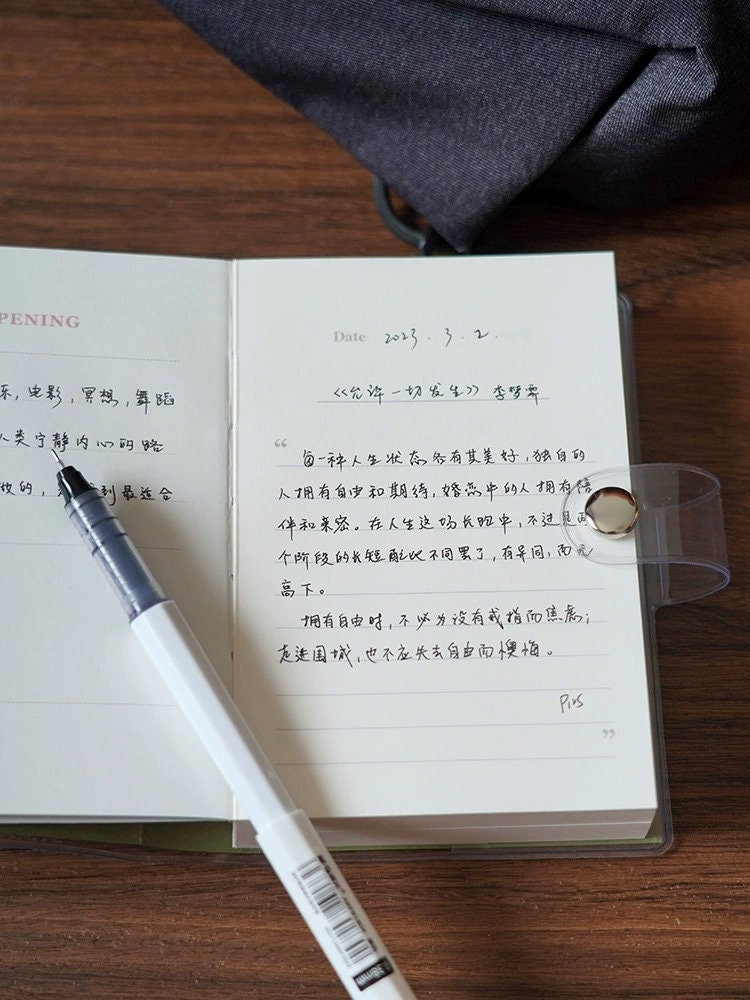 PENING
乐，电影，冥想，舞蹈
人类宁静内心的路
做的，到最适合
Date 2023.3.2.
《允许一切发生》 李梦霁
“
每一种人生状态各有其美好，独自的
人拥有自由和期待，婚恋中的人拥有陪
伴和亲密。在人生这场长跑中，不过是两
个阶段的长短配比不同罢了，有异同，而无
高下。
拥有自由时，不必为没有戒指而焦虑；
走进围城，也不应失去自由而懊悔。
P125
”